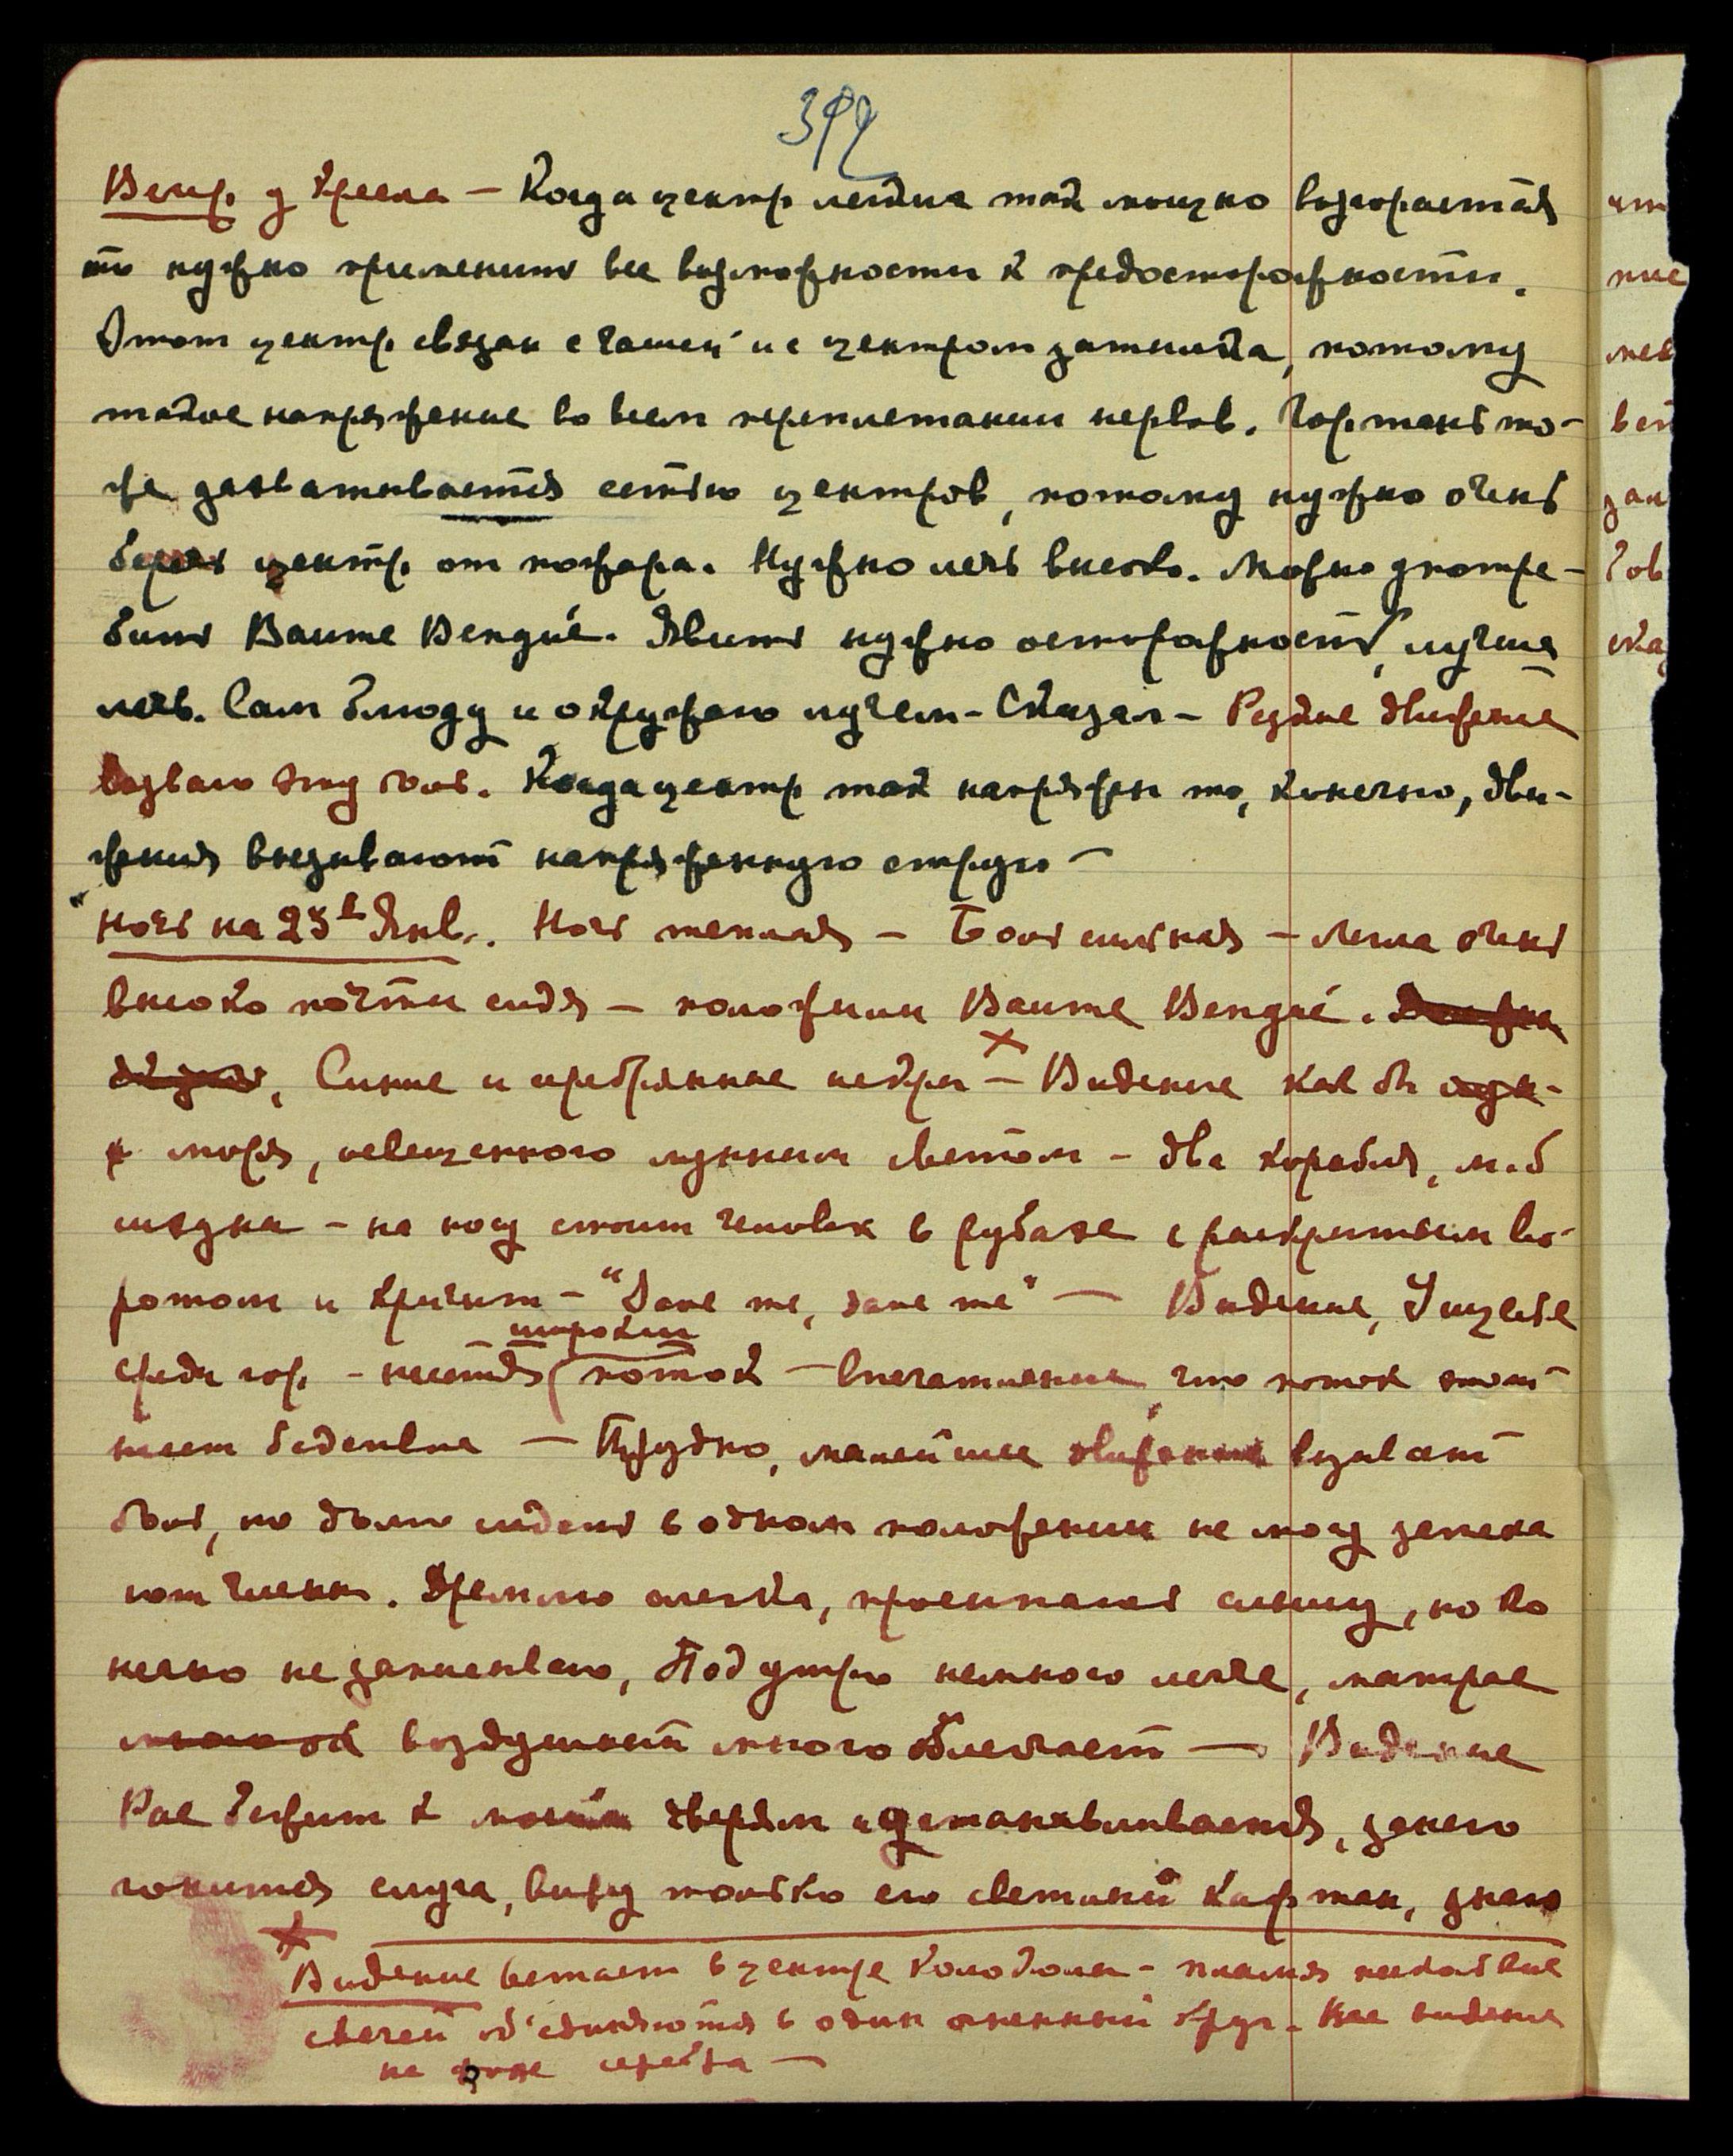 392
Веч. у Кресла — Когда центр легких так мощно возгорается
то нужно применить все возможности к предосторожности.
Этот центр связан с Чашей и с центром затылка, потому
такое напряжение во всем переплетании нервов. Гортань то-
же захватывается сетью центров, потому нужно очень
беречь центр от пожара. Нужно лечь высоко. Можно употре-
бить Baume Bengué. Явить нужно осторожность, лучше
лечь. Сам блюду и окружаю лучем - Сказал - Резкие движения
вызвало эту боль. Когда центр так напряжен то, конечно, дви-
жения вызывают напряженную струю —
Ночь на 25е Янв. Ночь теплая — Боль сильная — легла очень
высоко почти сидя — положили Baume Bengué.
Синие и серебрянные искры — Видение как бы
моря, освещенного лунным светом - два корабля, м.б
шхуна - на носу стоит человек в рубахе с раскрытым во-
ротом и кричит - "Save me, save me" — Видение, Ущелье
среди гор - несется широкий поток — впечатление, что поток этот
несет бедствие — Трудно, малейшее движение вызывает
боль, но долго сидеть в одном положении не могу затека
ют члены. Дремлю слегка, просыпаясь слышу, но ко
нечно не записываю, Под утро немного легче, матрас
воздушный много облегчает — Видение
Рае бежит к моим дверям и останавливается, за нею
гонится слуга, вижу только его светлый кафтан, знаю
× Видение встает в центре Колокола - пламя нескольких
свечей об'единяются в один огненный круг. Все видение
на фоне серебра —
чт
ние
меч
вет
зак
Гов
ска